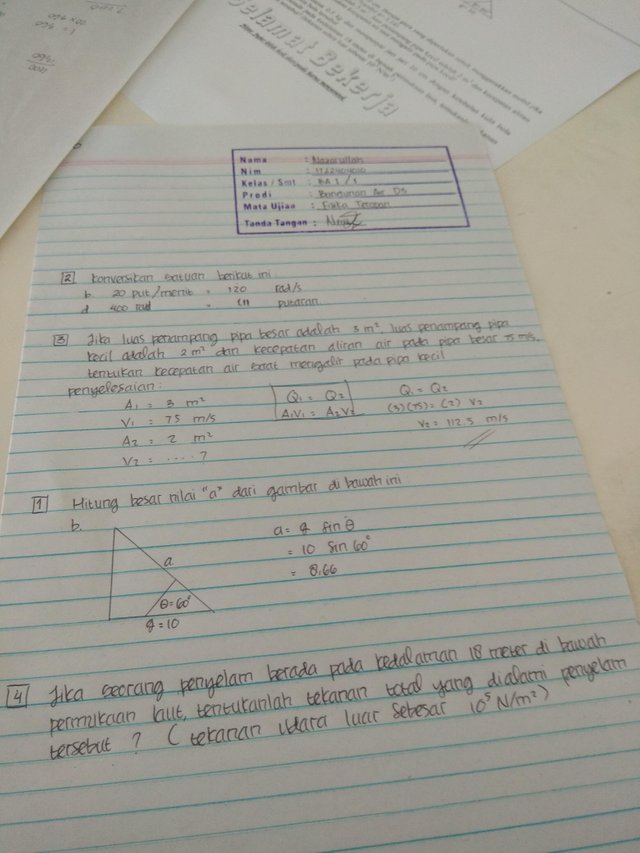 Selamat Bekerja
Nama : Nazarullah
Nim :
Kelas / Smt : BA 1 / 1
Prodi : Bangunan Air D3
Mata Ujian : Fisika Terapan
Tanda Tangan :
2 Konversikan satuan berikut ini
b 20 put/menit = 120 rad/s
d 400 rad = putaran
3 Jika luas penampang pipa besar adalah 3 m², luas penampang pipa
kecil adalah 2 m² dan kecepatan aliran air pada pipa besar 75 m/s,
tentukan kecepatan air saat mengalir pada pipa kecil
penyelesaian :
A1 = 3 m²
V1 = 75 m/s
A2 = 2 m²
V2 = ..... ?
Q1 = Q2
A1V1 = A2V2
Q1 = Q2
(3)(75) = (2) V2
V2 = 112.5 m/s
1 Hitung besar nilai "a" dari gambar di bawah ini
b.
a
θ=60°
q=10
a = q sin θ
= 10 sin 60°
= 8.66
4 Jika seorang penyelam berada pada kedalaman 18 meter di bawah
permukaan laut, tentukanlah tekanan total yang dialami penyelam
tersebut ? (tekanan udara luar sebesar 10⁵ N/m²)